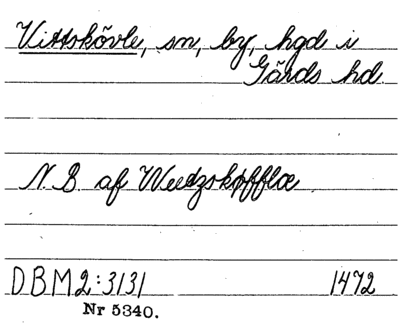 Vittskövle, sn, by, hgd i
Gärds hd.
N. B. af Weedzskøfflæ
DBM2:3131 1472
Nr 5340.